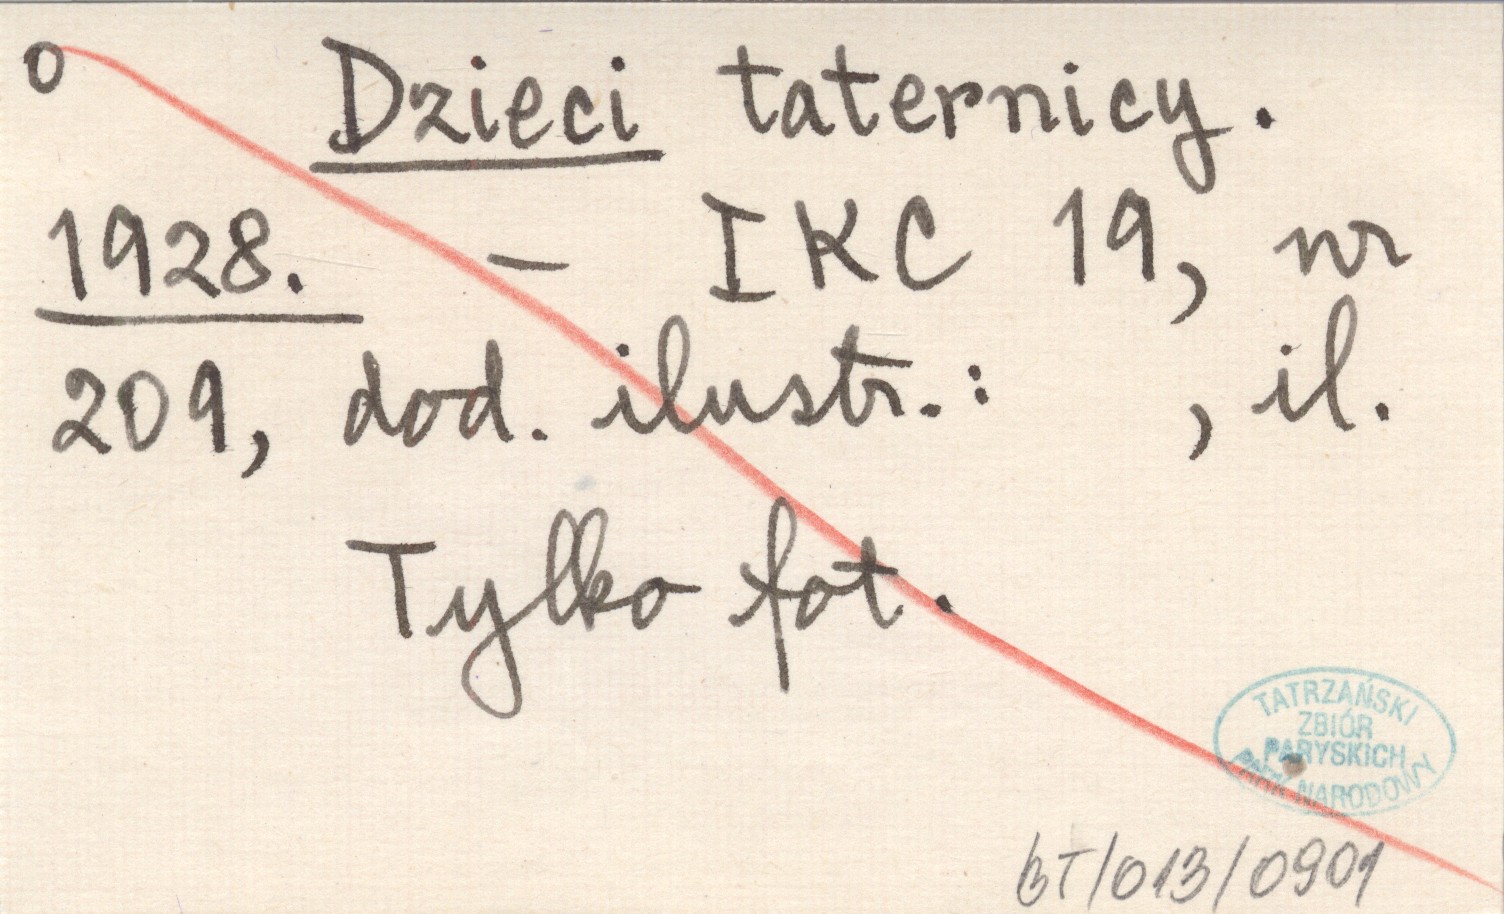 o Dzieci taternicy.
1928. – IKC 19, nr
209, dod. ilustr.: , il.
Tylko fot.
TATRZAŃSKI
ZBIÓR
PARYSKICH
PARK NARODOWY
BT/013/0901